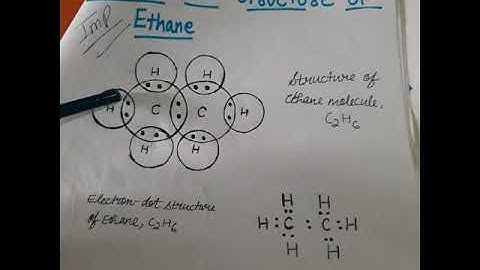 Structure of
Imp
Ethane
H H
H C C H
H H
Structure of
ethane molecule,
C2H6
Electron-dot structure
of Ethane, C2H6
H H
H : C : C : H
H H